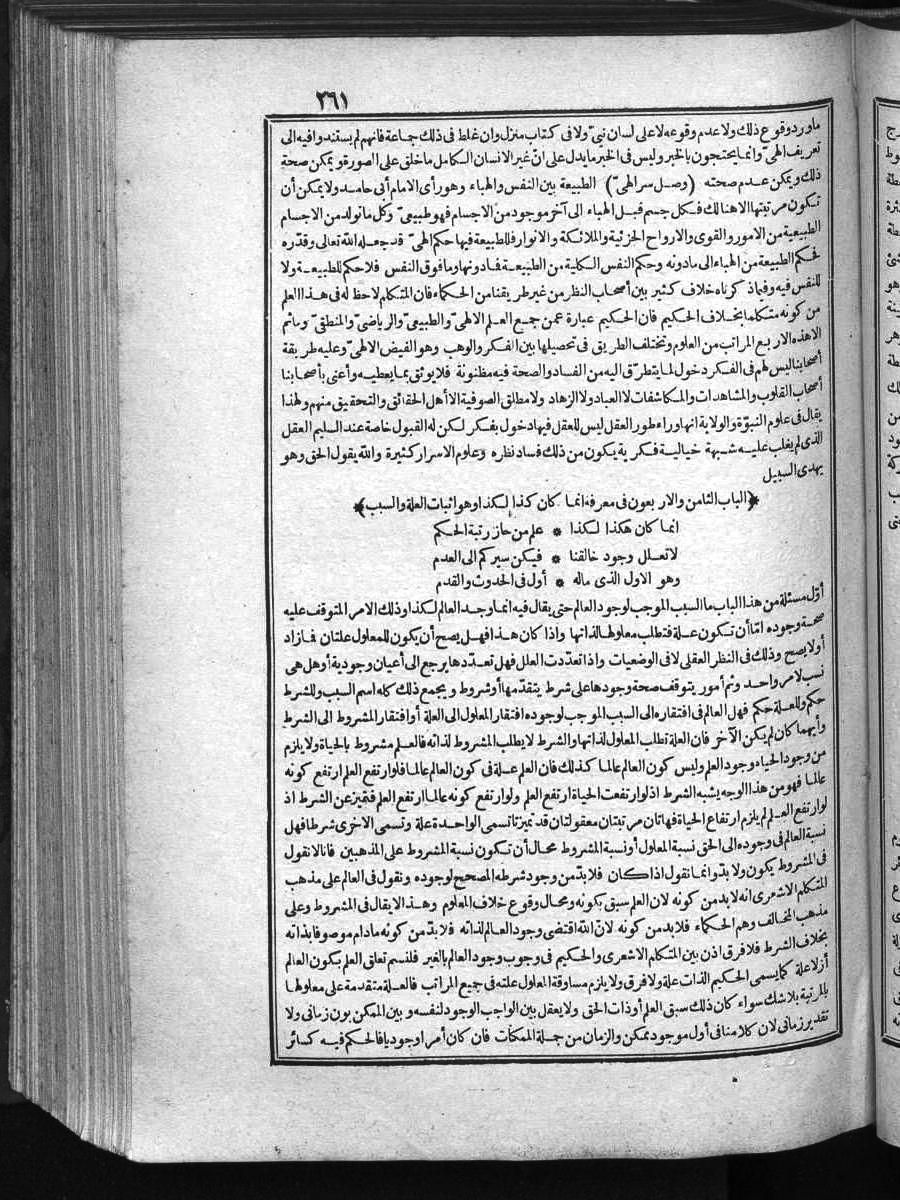 ٢٦١
ماورد وقوع ذلك ولا عدم وقوعه لا على لسان نبيّ ولا فى كتاب منزل وان غلط فى ذلك جماعة فانهم لم يستندوا فيه الى
تعريف الهىّ وانما يحتجون بالخبر وليس فى الخبر ما يدل على انّ غير الانسان الكامل ما خلق على الصورة و يمكن صحة
ذلك ويمكن عدم صحته (وصل سر الهىّ) الطبيعة بين النفس والهباء وهو رأى الامام أبى حامد ولا يمكن أن
تكون مرتبتها الا هنالك فكل جسم قبل الهباء الى آخر موجود من الاجسام فهو طبيعىّ وكل ما تولد من الاجسام
الطبيعية من الامور والقوى والارواح الجزئية والملائكة والانوار فللطبيعة فيها حكم الهىّ قد جعله اللّه تعالى وقدّره
فحكم الطبيعة من الهباء الى مادونه وحكم النفس الكلية من الطبيعة فادونها وما فوق النفس فلا حكم للطبيعة ولا
للنفس فيه وفيما ذكرناه خلاف كثير بين أصحاب النظر من غير طريقنا من الحكماء فان المتكلم لاحظ له فى هذا العلم
من كونه متكلما بخلاف الحكيم فان الحكيم عبارة عمن جمع العلم الالهىّ والطبيعىّ والرياضىّ والمنطقىّ وماثم
الا هذه الاربع المراتب من العلوم وتختلف الطريق فى تحصيلها بين الفكر والوهب وهو الفيض الالهىّ وعليه طريقة
أصحابنا ليس لهم فى الفكر دخول لما يتطرّق اليه من الفساد والصحة فيه مظنونة فلا يوثق بما يعطيه وأعنى بأصحابنا
أصحاب القلوب والمشاهدات والمكاشفات لا العباد ولا الزهاد ولا مطلق الصوفية الا أهل الحقائق والتحقيق منهم ولهذا
يقال فى علوم النبوّة والولاية انها وراء طور العقل ليس للعقل فيها دخول بفكر لكن له القبول خاصة عند السليم العقل
الذى لم يغلب عليه شبهة خيالية فكرية يكون من ذلك فساد نظره وعلوم الاسرار كثيرة واللّه يقول الحق وهو
يهدى السبيل
﴿الباب الثامن والاربعون فى معرفة انما كان كذا لكذا وهو اثبات العلة والسبب﴾
انما كان هكذا لكذا * علم من حاز رتبة الحكم
لا تعلل وجود خالقنا * فيكن سيركم الى العدم
وهو الاول الذى ماله * أول فى الحدوث والقدم
أوّل مسئلة من هذا الباب ما السبب الموجب لوجود العالم حتى يقال فيه انما وجد العالم لكذا وذلك الامر المتوقف عليه
صحة وجوده امّا أن تكون علة فتطلب معلولها لذاتها واذا كان هذا فهل يصح أن يكون للمعلول علتان فازاد
أولا يصح وذلك فى النظر العقلى لا فى الوضعيات واذا تعدّدت العلل فهل تعدّدها يرجع الى أعيان وجودية أو هل هى
نسب لامر واحد وثم أمور يتوقف صحة وجودها على شرط يتقدّمها أو شروط ويجمع ذلك كله اسم السبب وللشرط
حكم وللعلة حكم فهل العالم فى افتقاره الى السبب الموجب لوجوده افتقار المعلول الى العلة أو افتقار المشروط الى الشرط
وأيهما كان لم يكن الآخر فان العلة تطلب المعلول لذاتها والشرط لا يطلب المشروط لذاته فالعلم مشروط بالحياة ولا يلزم
من وجود الحياه وجود العلم وليس كون العالم عالما كذلك فان العلم علة فى كون العالم عالما فلو ارتفع العلم ارتفع كونه
عالما فهو من هذا الوجه يشبه الشرط اذ لو ارتفعت الحياة ارتفع العلم ولو ارتفع كونه عالما ارتفع العلم فتميز عن الشرط اذ
لو ارتفع العلم لم يلزم ارتفاع الحياة فهاتان مرتبتان معقولتان قد تميزتا تسمى الواحدة علة وتسمى الاخرى شرطا فهل
نسبة العالم فى وجوده الى الحق نسبة المعلول أو نسبة المشروط محال أن تكون نسبة المشروط على المذهبين فانا لا نقول
فى المشروط يكون ولا بدّ وانما نقول اذا كان فلا بدّ من وجود شرطه المصحح لوجوده ونقول فى العالم على مذهب
المتكلم الاشعرى انه لا بد من كونه لان العلم سبق بكونه ومحال وقوع خلاف المعلوم وهذا لا يقال فى المشروط وعلى
مذهب المخالف وهم الحكماء فلا بد من كونه لانّ اللّه اقتضى وجود العالم لذاته فلا بدّ من كونه مادام موصوفا بذاته
بخلاف الشرط فلا فرق اذن بين المتكلم الاشعرى والحكيم فى وجوب وجود العالم بالغير فلنسم تعلق العلم بكون العالم
أزلا علة كما يسمى الحكيم الذات علة ولا فرق ولا يلزم مساوقة المعلول علته فى جميع المراتب فالعلة متقدمة على معلولها
بالمرتبة بلا شك سواء كان ذلك سبق العلم أو ذات الحق ولا يعقل بين الواجب الوجود لنفسه وبين الممكن بون زمانى ولا
تقدير زمانى لان كلامنا فى أول موجود ممكن والزمان من جملة الممكنات فان كان أمرا وجوديا فالحكم فيه كسائر